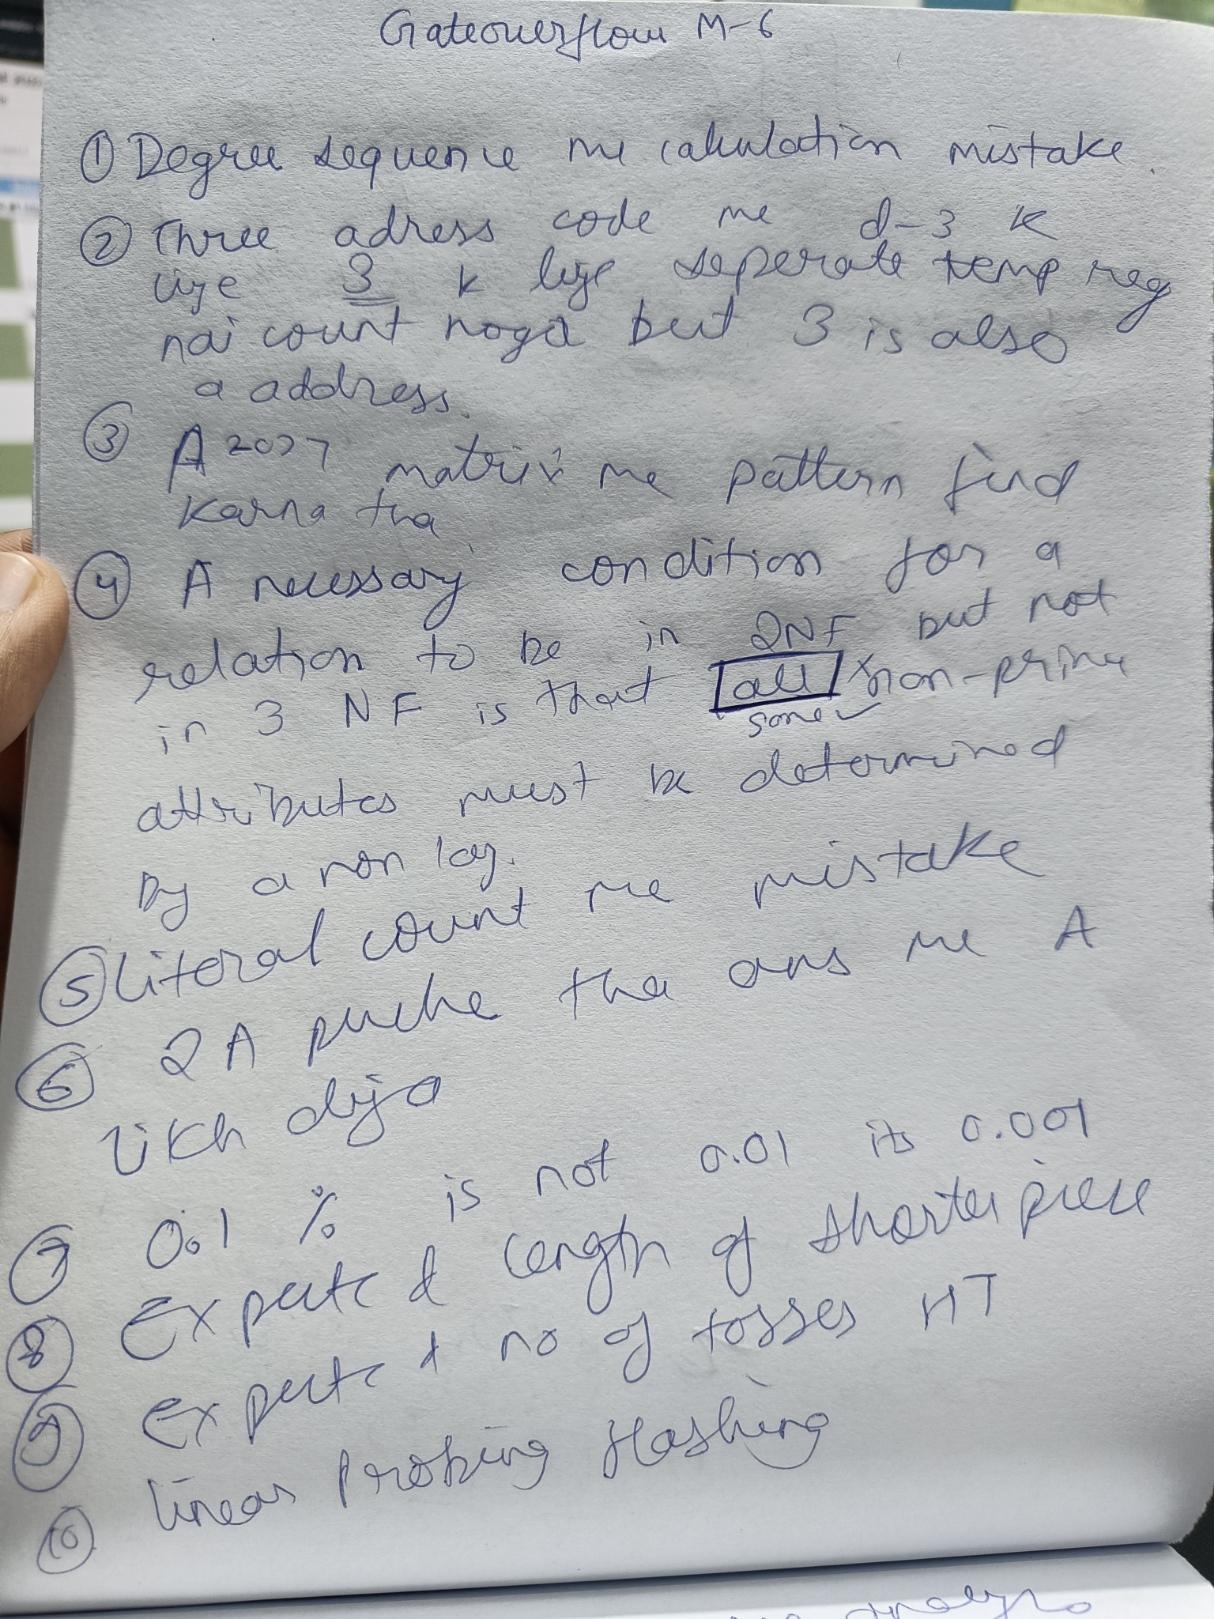 Gateoverflow M-6
① Degree sequence me calculation mistake.
② Three adress code me d-3 k
liye 3 k liye seperate temp reg
nai count hoga but 3 is also
a address.
③ A²⁰²⁷ matrix me pattern find
karna tha
④ A necessary condition for a
relation to be in 2NF but not
in 3 NF is that all non-prime
some
attributes must be determined
by a non key.
⑤ literal count me mistake
⑥ 2A puche tha ans me A
likh diya
⑦ 0.1 % is not 0.01 its 0.001
⑧ Expected length of shorter piece
⑨ Expected no of tosses HT
⑩ linear Probing Hashing